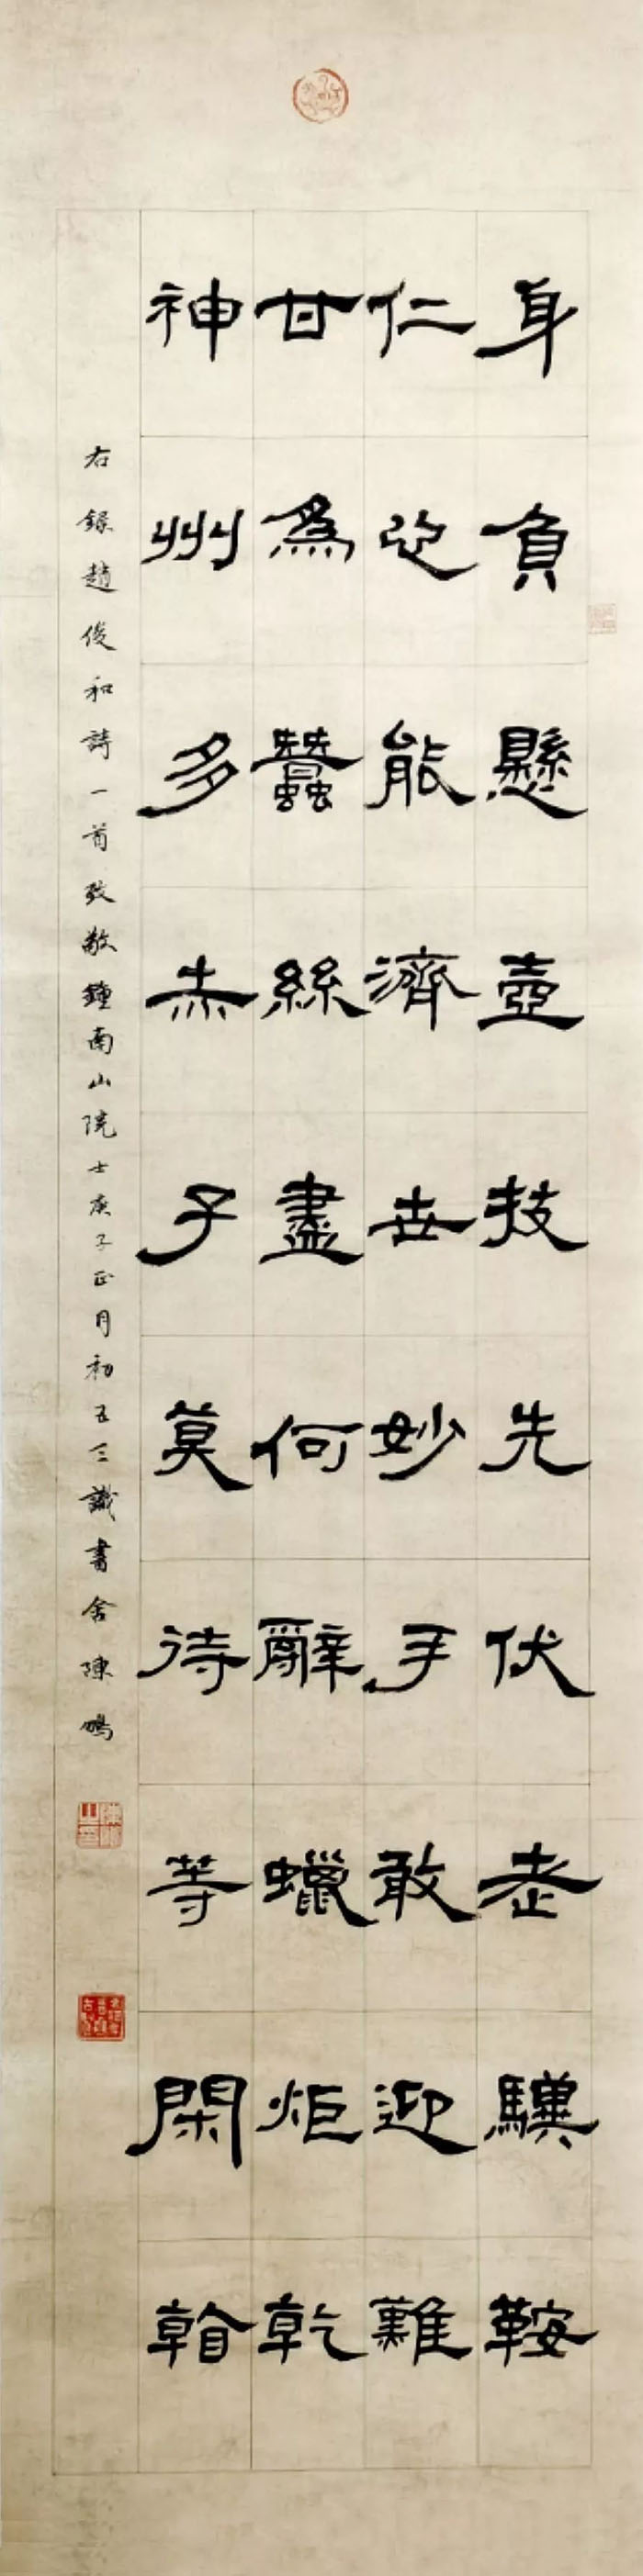 身負懸壺技先伏老驥鞍
仁心能濟世妙手敢迎難
甘為蠶絲盡何辭蠟炬乾
神州多赤子莫待等閑看
右錄趙俊和詩一首致敬鍾南山院士庚子正月初五三識書舍陳鵬